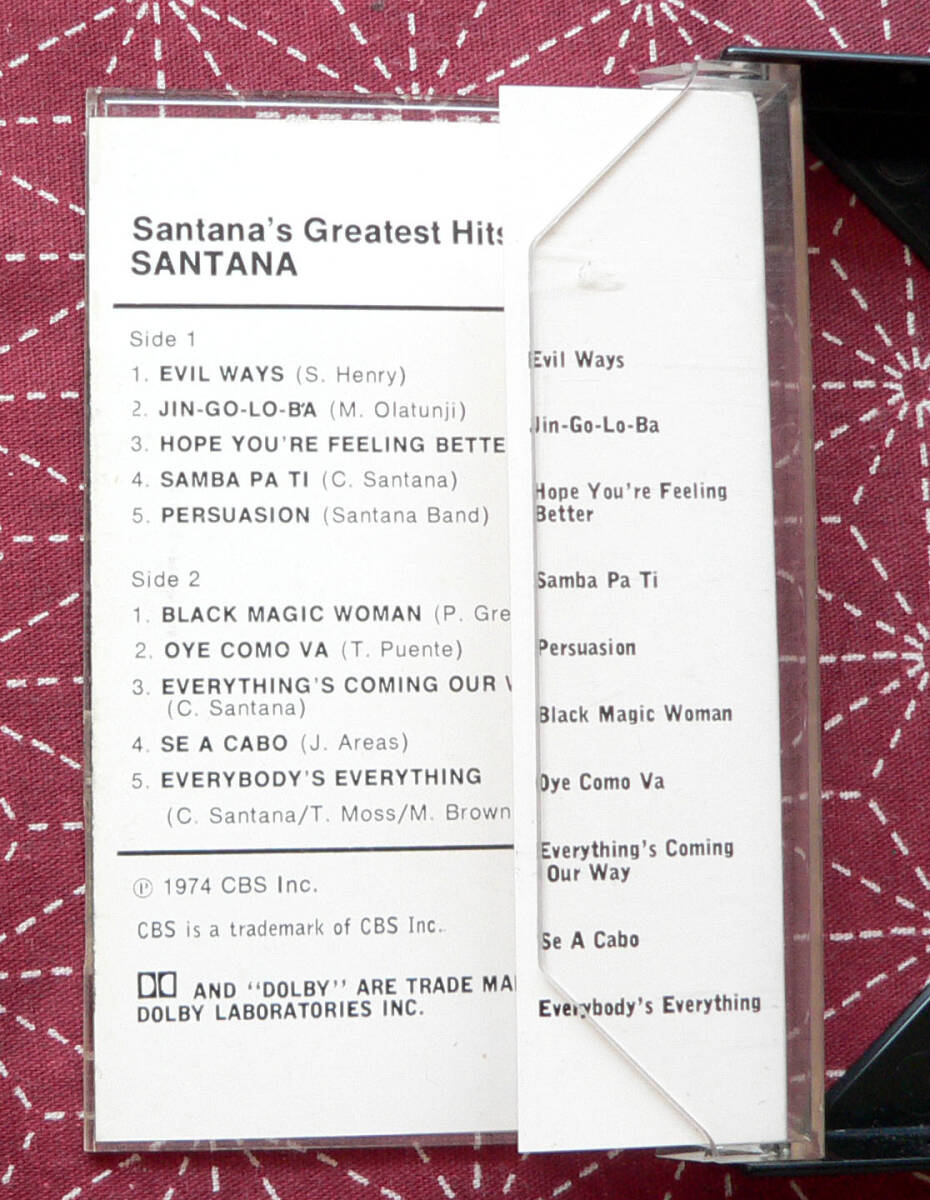 Santana's Greatest Hits
SANTANA
Side 1
1. EVIL WAYS (S. Henry)
2. JIN-GO-LO-BA (M. Olatunji)
3. HOPE YOU'RE FEELING BETTE
4. SAMBA PA TI (C. Santana)
5. PERSUASION (Santana Band)
Side 2
1. BLACK MAGIC WOMAN (P. Gre
2. OYE COMO VA (T. Puente)
3. EVERYTHING'S COMING OUR
(C. Santana)
4. SE A CABO (J. Areas)
5. EVERYBODY'S EVERYTHING
(C. Santana/T. Moss/M. Brown
℗ 1974 CBS Inc.
CBS is a trademark of CBS Inc.
AND "DOLBY" ARE TRADE MA
DOLBY LABORATORIES INC.
Evil Ways
Jin-Go-Lo-Ba
Hope You're Feeling
Better
Samba Pa Ti
Persuasion
Black Magic Woman
Oye Como Va
Everything's Coming
Our Way
Se A Cabo
Everybody's Everything